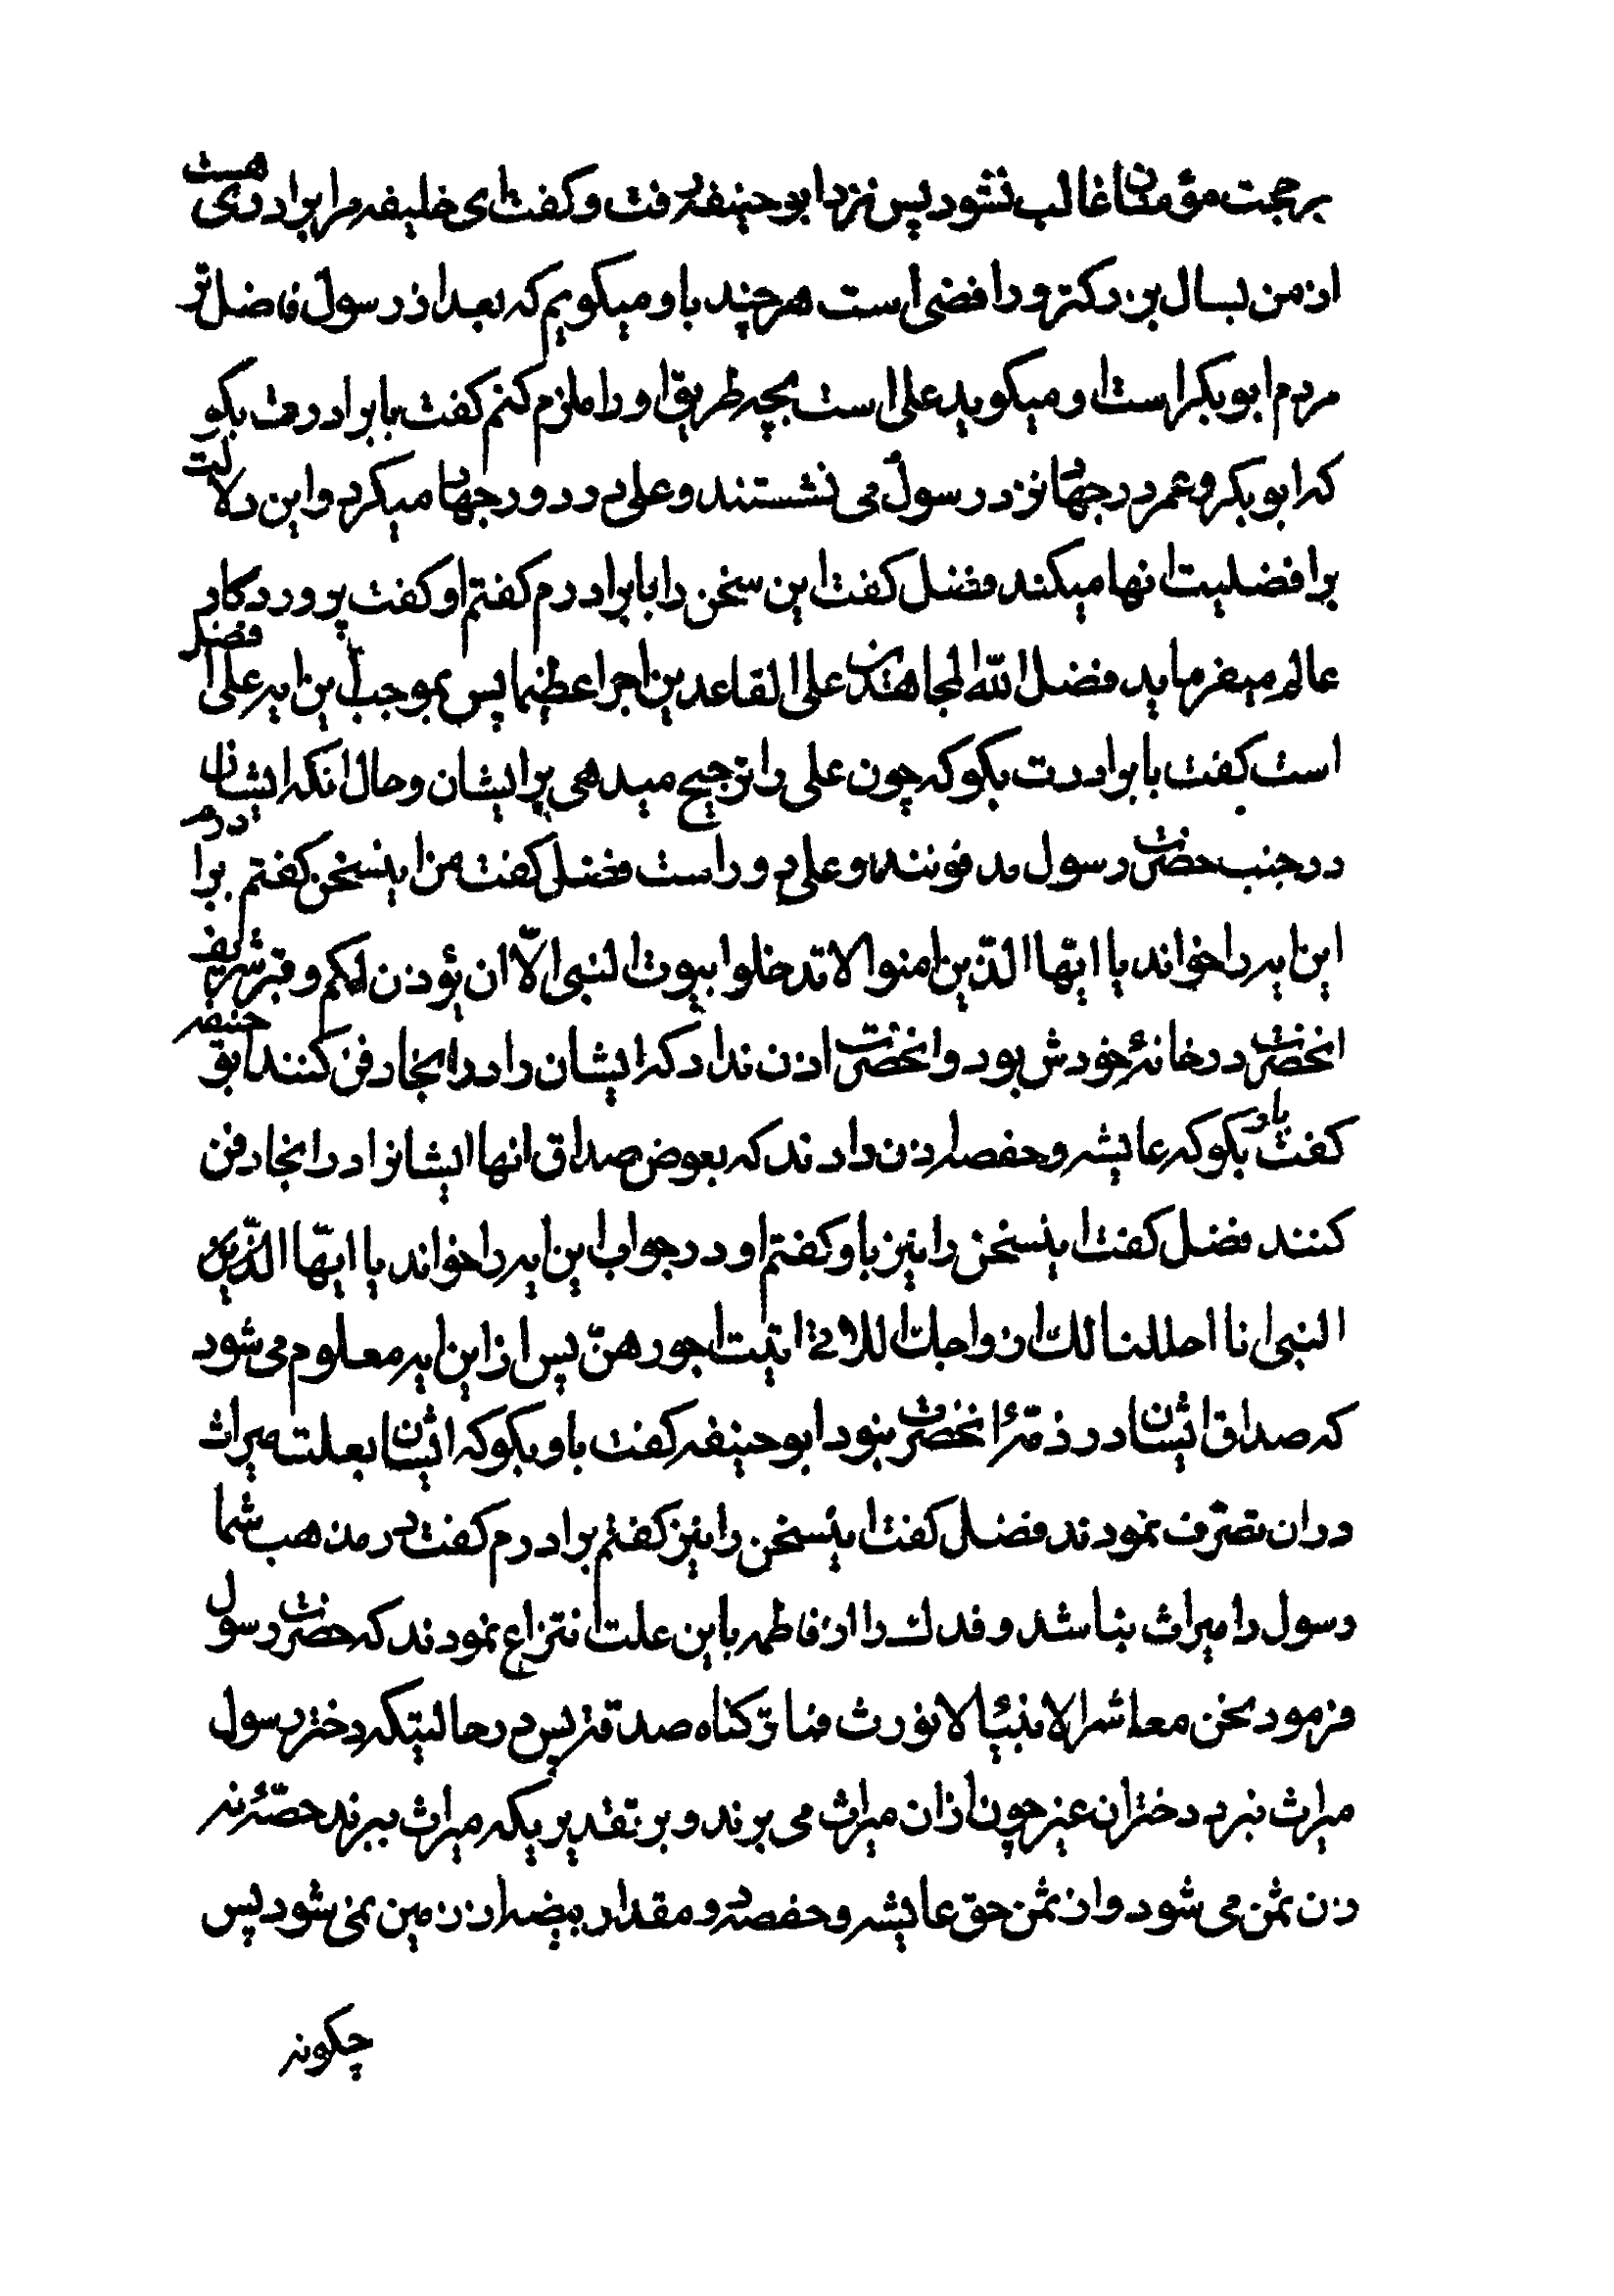 بر حجت مؤمنان غالب نشود پس نزد ابو حنیفه رفت و کفت ای خلیفه مرا برادری هست
از من بسال بزرکتر و رافضی است هر چند باو میکویم که بعد از رسول فاضل تر
مردم ابو بکر است او میکوید علی است بچه طریق او را ملزم کنم کفت با برادرت بکو
که ابو بکر و عمر در جهاد نزد رسول می نشستند و علی در دور جهاد میکرد و این دلالت
بر افضلیت انها میکند فضل کفت این سخن را با برادرم کفتم او کفت پروردکار
عالم میفرماید فضل الله المجاهدین علی القاعدین اجرا عظیما پس بموجب این ایه علی افضل
است کفت با برادرت بکو که چون علی را ترجیح میدهی بر ایشان و حال انکه ایشان
در جنب حضرت رسول مدفونند و علی دور است فضل کفت من اینسخن کفتم برادرم
این ایه را خواند یا ایها الذین امنوا لا تدخلوا بیوت النبی الّا ان یؤذن لکم و قبر شریف
انحضرت در خانهٔ خودش بود و انحضرت اذن نداد که ایشان را در انجا دفن کنند ابو حنیفه
کفت باو بکو که عایشه و حفصه اذن دادند که بعوض صداق انها ایشانرا در انجا دفن
کنند فضل کفت اینسخن را نیز باو کفتم او در جواب این ایه را خواند یا ایّها الذین
النبی انا احللنا لك ازواجك اللاتی اتیت اجورهنّ پس از این ایه معلوم می شود
که صداق ایشان در ذمّهٔ انحضرت نبود ابو حنیفه کفت باو بکو که ایشان بعلت میراث
در ان تصرّف نمودند فضل کفت اینسخن را نیز کفتم برادرم کفت در مذهب شما
رسول را میراث نباشد و فدك را از فاطمه باین علت انتزاع نمودند که حضرت رسول
فرمود نحن معاشر الانبیآ لا نورث فما ترکناه صدقة پس در حالتیکه دختر رسول
میراث نبرد دختران غیر چون از ان میراث می برند و بر تقدیریکه میراث ببرند حصّهٔ نه
زن ثمن می شود و از ثمن حق عایشه و حفصه دو مقدار بیضه از زمین نمی شود پس
چکونه